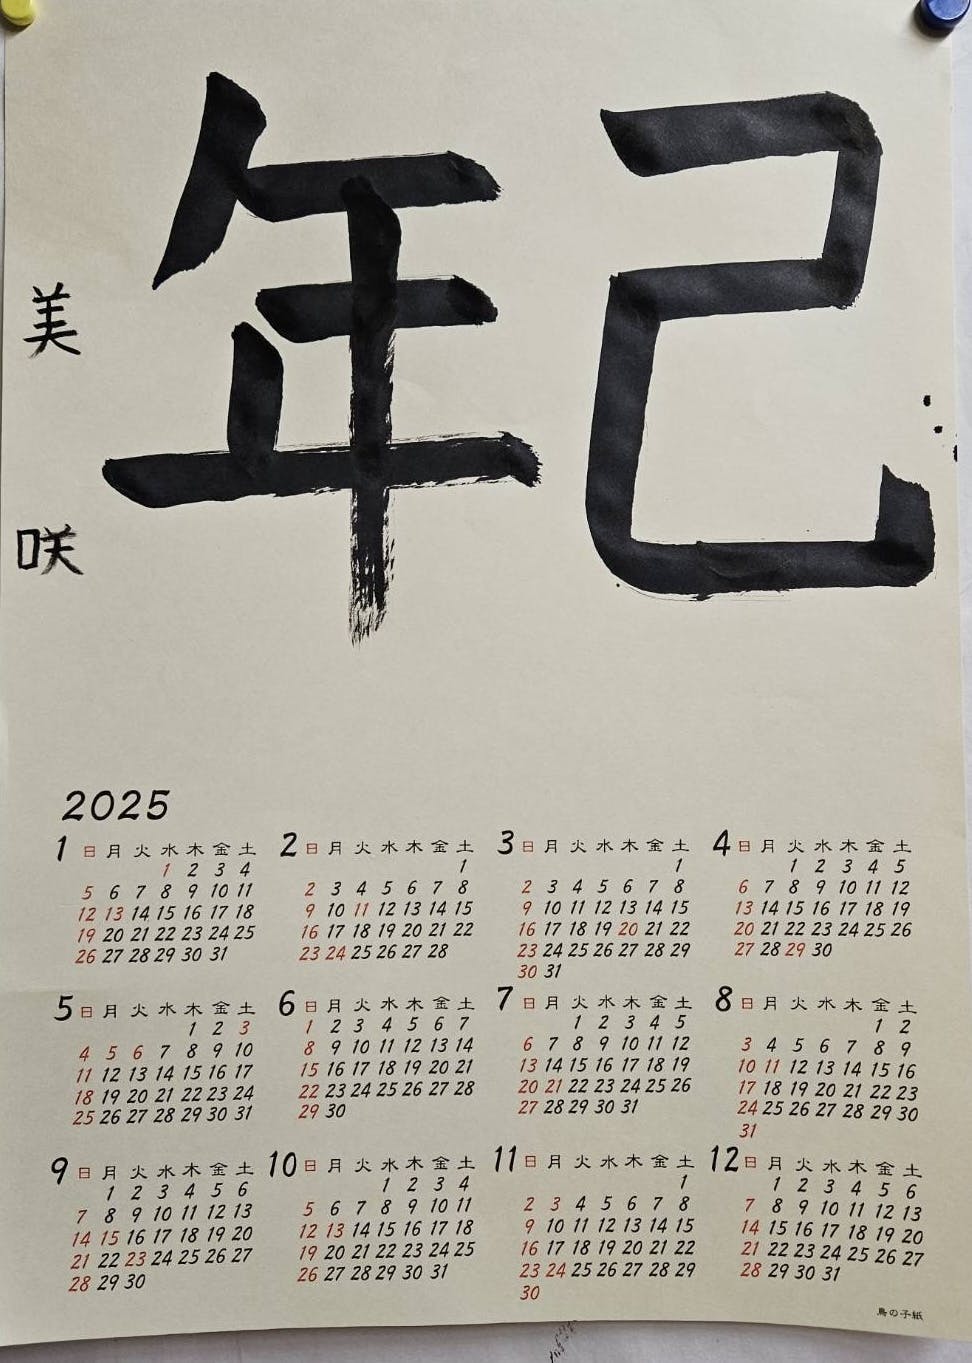 己年
美咲
2025
1 日 月 火 水 木 金 土
1 2 3 4
5 6 7 8 9 10 11
12 13 14 15 16 17 18
19 20 21 22 23 24 25
26 27 28 29 30 31
2 日 月 火 水 木 金 土
1
2 3 4 5 6 7 8
9 10 11 12 13 14 15
16 17 18 19 20 21 22
23 24 25 26 27 28
3 日 月 火 水 木 金 土
1
2 3 4 5 6 7 8
9 10 11 12 13 14 15
16 17 18 19 20 21 22
23 24 25 26 27 28 29
30 31
4 日 月 火 水 木 金 土
1 2 3 4 5
6 7 8 9 10 11 12
13 14 15 16 17 18 19
20 21 22 23 24 25 26
27 28 29 30
5 日 月 火 水 木 金 土
1 2 3
4 5 6 7 8 9 10
11 12 13 14 15 16 17
18 19 20 21 22 23 24
25 26 27 28 29 30 31
6 日 月 火 水 木 金 土
1 2 3 4 5 6 7
8 9 10 11 12 13 14
15 16 17 18 19 20 21
22 23 24 25 26 27 28
29 30
7 日 月 火 水 木 金 土
1 2 3 4 5
6 7 8 9 10 11 12
13 14 15 16 17 18 19
20 21 22 23 24 25 26
27 28 29 30 31
8 日 月 火 水 木 金 土
1 2
3 4 5 6 7 8 9
10 11 12 13 14 15 16
17 18 19 20 21 22 23
24 25 26 27 28 29 30
31
9 日 月 火 水 木 金 土
1 2 3 4 5 6
7 8 9 10 11 12 13
14 15 16 17 18 19 20
21 22 23 24 25 26 27
28 29 30
10 日 月 火 水 木 金 土
1 2 3 4
5 6 7 8 9 10 11
12 13 14 15 16 17 18
19 20 21 22 23 24 25
26 27 28 29 30 31
11 日 月 火 水 木 金 土
1
2 3 4 5 6 7 8
9 10 11 12 13 14 15
16 17 18 19 20 21 22
23 24 25 26 27 28 29
30
12 日 月 火 水 木 金 土
1 2 3 4 5 6
7 8 9 10 11 12 13
14 15 16 17 18 19 20
21 22 23 24 25 26 27
28 29 30 31
鳥の子紙